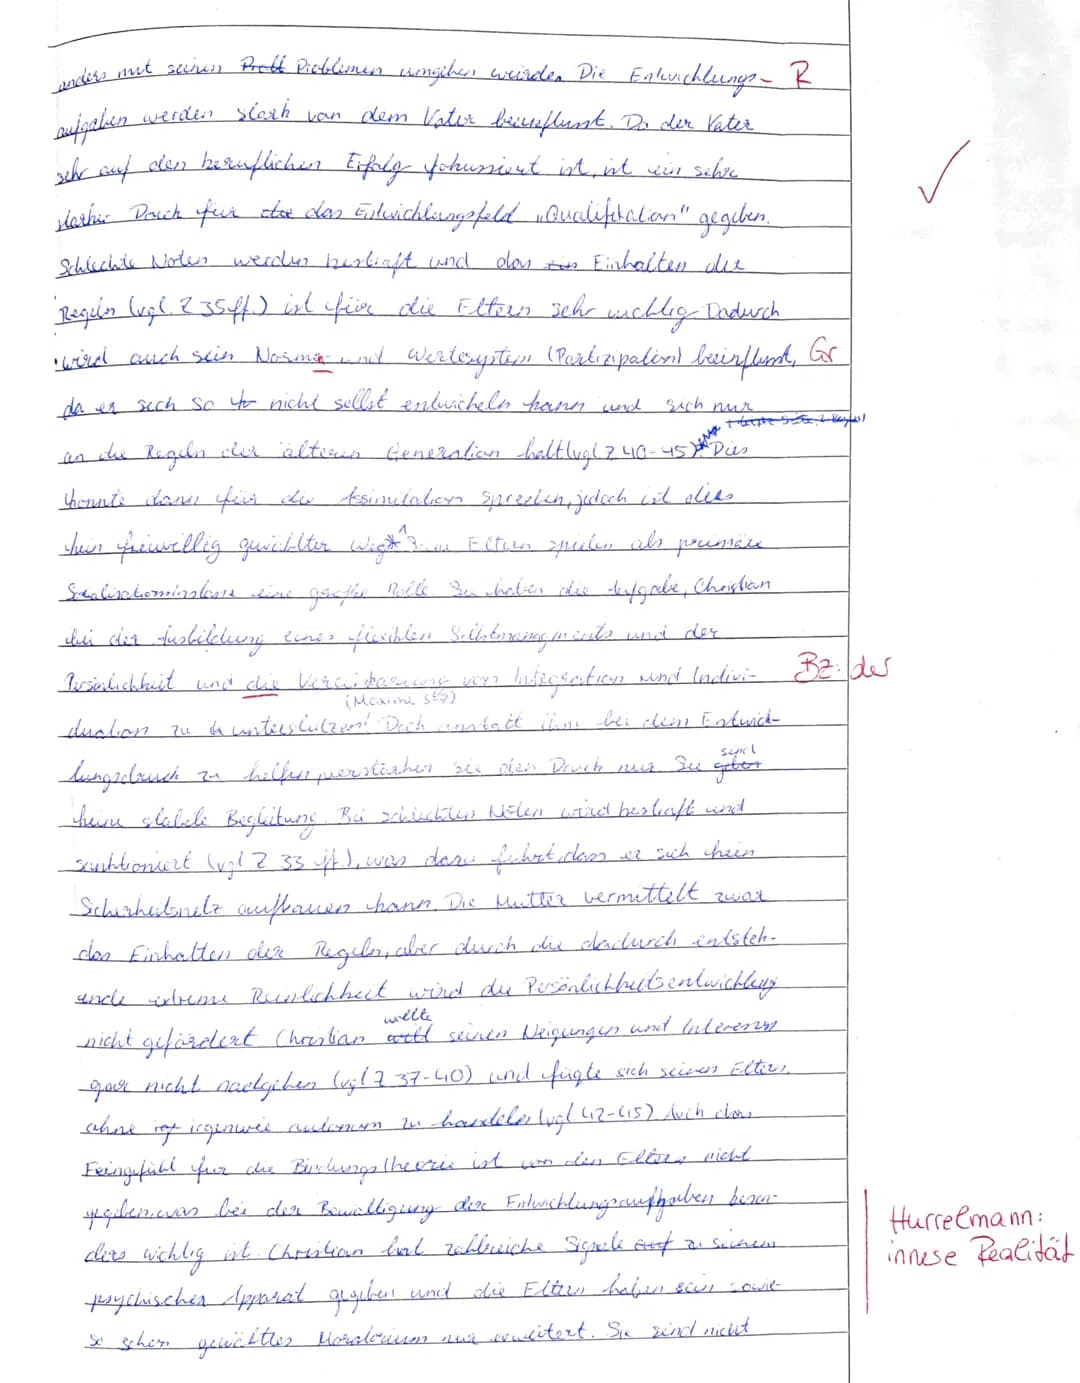 anders mit seinen Problemen umgehen würden. Die Entwicklungs- R
aufgaben werden stark von dem Vater beeinflusst. Da der Vater
sehr auf den beruflichen Erfolg fokussiert ist, ist ein sehr
starker Druck für das Entwicklungsfeld „Qualifikation" gegeben.
Schlechte Noten werden bestraft und das Einhalten der
Regeln (vgl. Z 35ff.) ist für die Eltern sehr wichtig. Dadurch
wird auch sein Norma- und Wertesystem (Partizipation) beeinflusst, Gr
da er sich so nicht selbst entwickeln kann und sich nur
an die Regeln der älteren Generation hält (vgl Z 40-45). Dies
könnte dann für die Assimilation sprechen, jedoch ist dies
kein freiwillig gewählter Weg. Eltern spielen als primäre
Sozialisationsinstanz eine große Rolle. Sie haben die Aufgabe, Christian
bei der Ausbildung eines flexiblen Selbstmanagements und der
Persönlichkeit und die Vereinbarung von Integration und Indivi- Bz: der
(Maxime 5&7)
duation zu unterstützen! Doch anstatt ihm bei dem Entwick-
lungsdruck zu helfen, verstärken sie den Druck nur. Sie sind
keine stabile Begleitung. Bei schlechten Noten wird bestraft und
sanktioniert (vgl Z 33 ff.), was dazu führt, dass er sich kein
Sicherheitsnetz aufbauen kann. Die Mutter vermittelt zwar
das Einhalten der Regeln, aber durch die dadurch entsteh-
ende extreme Reinlichkeit wird die Persönlichkeitsentwicklung
nicht gefördert. Christian wollte seinen Neigungen und Interessen
gar nicht nachgehen (vgl Z 37-40) und fügte sich seinen Eltern,
ohne irgenwie autonom zu handeln (vgl 42-45) Auch das
Feingefühl für die Bindungstheorie ist von den Eltern nicht
gegeben, was bei der Bewältigung der Entwicklungsaufgaben beson-
ders wichtig ist. Christian hat zahlreiche Signale zu seinem
psychischen Apparat gegeben und die Eltern haben sein sowie-
so schon gewähltes Moratorium nur erweitert. Sie sind nicht
Hurrelmann:
innere Realität